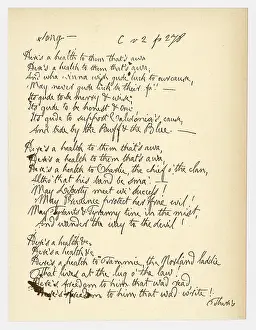 Song —
C v 2 p 278
Here's a health to them that's awa,
Here's a health to them that's awa,
And wha winna wish gude luck to our cause,
May never gude luck be their fa'! —
Its gude to be merry & wise;
Its gude to be honest & true
Its gude to support Caledonia's cause,
And bide by the Buff & the Blue. —
Here's a health to them that's awa,
Here's a health to them that's awa,
Here's a health to Charlie, the chief o' the clan,
Altho' that his band be sma'. —
May Liberty meet wi' success!
May Prudence protect her frae evil!
May Tyrants & Tyranny tine in the mist,
And wander the way to the devil!
Here's a health &c,
Here's a health &c
Here's a health to Tammie, the Norland laddie
That lives at the lug o' the law!
Here's freedom to him that wad read,
Here's freedom to him that wad write!